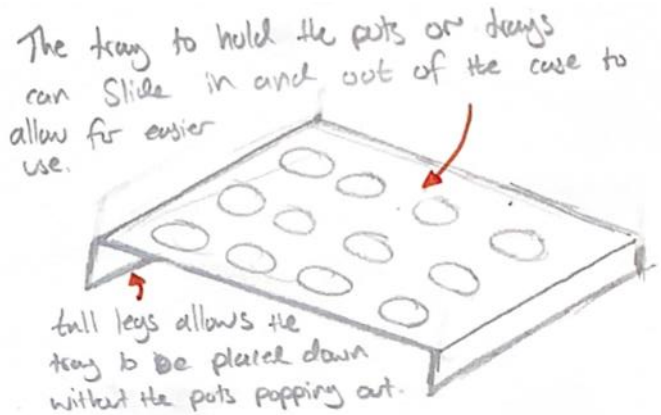 The tray to hold the pots or trays
can Slide in and out of the case to
allow for easier
use.
tall legs allows the
tray to be placed down
without the pots popping out.